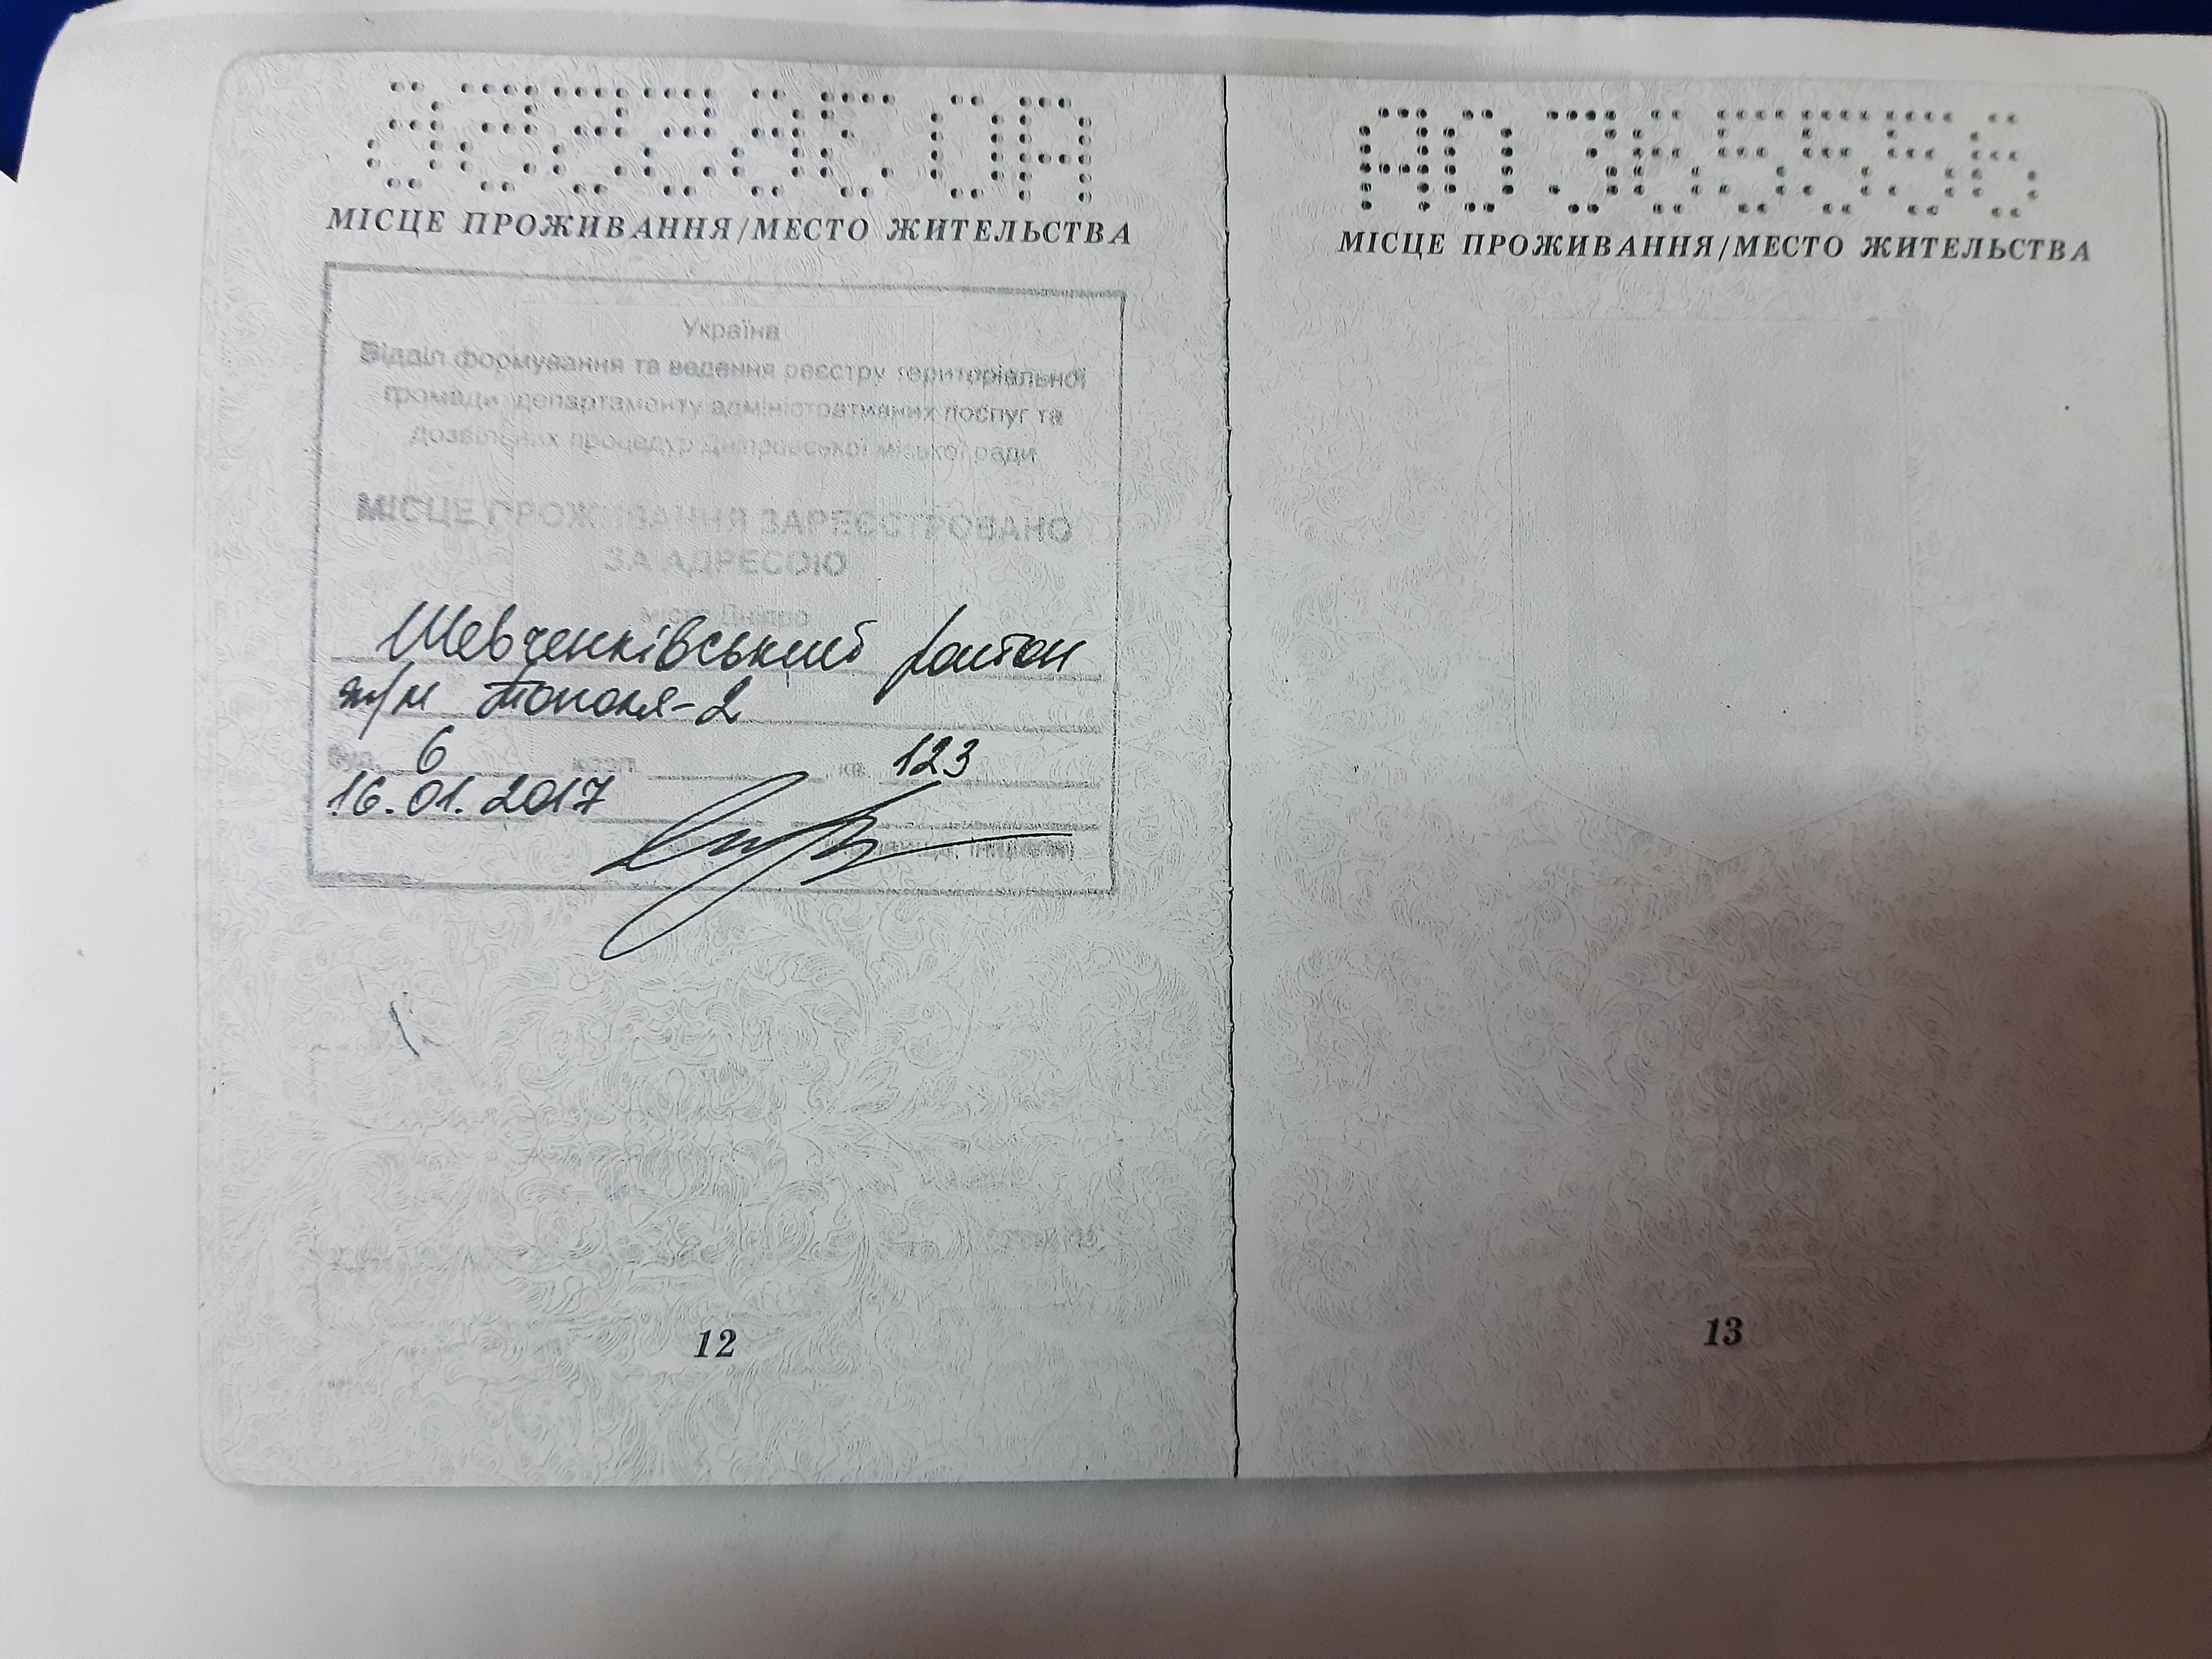 МІСЦЕ ПРОЖИВАННЯ/МЕСТО ЖИТЕЛЬСТВА
Україна
Відділ формування та ведення реєстру територіальної
громади департаменту адміністративних послуг та
дозвільних процедур Дніпровської міської ради
МІСЦЕ ПРОЖИВАННЯ ЗАРЕЄСТРОВАНО
ЗА АДРЕСОЮ
місто Дніпро
Шевченківський район
ж/м Тополя-2
буд. 6 корп. кв. 123
16.01.2017
12
МІСЦЕ ПРОЖИВАННЯ/МЕСТО ЖИТЕЛЬСТВА
13